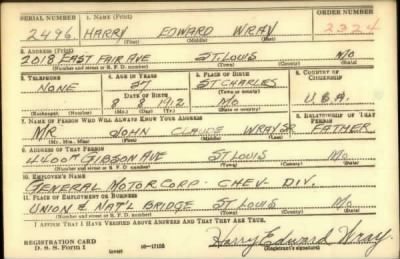 SERIAL NUMBER 1. NAME (Print) ORDER NUMBER
2496 HARRY EDWARD WRAY 2324
(First) (Middle) (Last)
2. ADDRESS (Print)
2018 EAST FAIR AVE ST. LOUIS MO
(Number and street or R. F. D. number) (Town) (County) (State)
3. TELEPHONE 4. AGE IN YEARS 5. PLACE OF BIRTH 6. COUNTRY OF CITIZENSHIP
NONE ST CHARLES
DATE OF BIRTH (Town or county)
8 8 1912 MO U.S.A.
(Exchange) (Number) (Mo.) (Day) (Yr.) (State or country)
7. NAME OF PERSON WHO WILL ALWAYS KNOW YOUR ADDRESS 8. RELATIONSHIP OF THAT PERSON
MR JOHN CLAUDE WRAY SR FATHER
(Mr., Mrs., Miss) (First) (Middle) (Last)
9. ADDRESS OF THAT PERSON
GIBSON AVE ST LOUIS MO
(Number and street or R. F. D. number) (Town) (County) (State)
10. EMPLOYER'S NAME
GENERAL MOTOR CORP - CHEV - DIV.
11. PLACE OF EMPLOYMENT OR BUSINESS
UNION & NAT'L BRIDGE ST LOUIS MO
(Number and street or R. F. D. number) (Town) (County) (State)
I AFFIRM THAT I HAVE VERIFIED ABOVE ANSWERS AND THAT THEY ARE TRUE.
REGISTRATION CARD
D. S. S. Form 1 (over) 16—17105 Harry Edward Wray
(Registrant's signature)